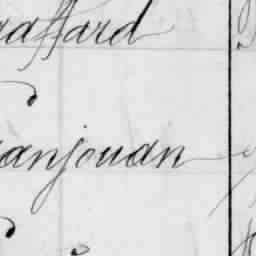 raffard
anjouan